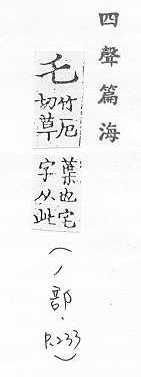 四聲篇海
乇
竹厄切草
葉也宅字从此
(丿部.P.233)